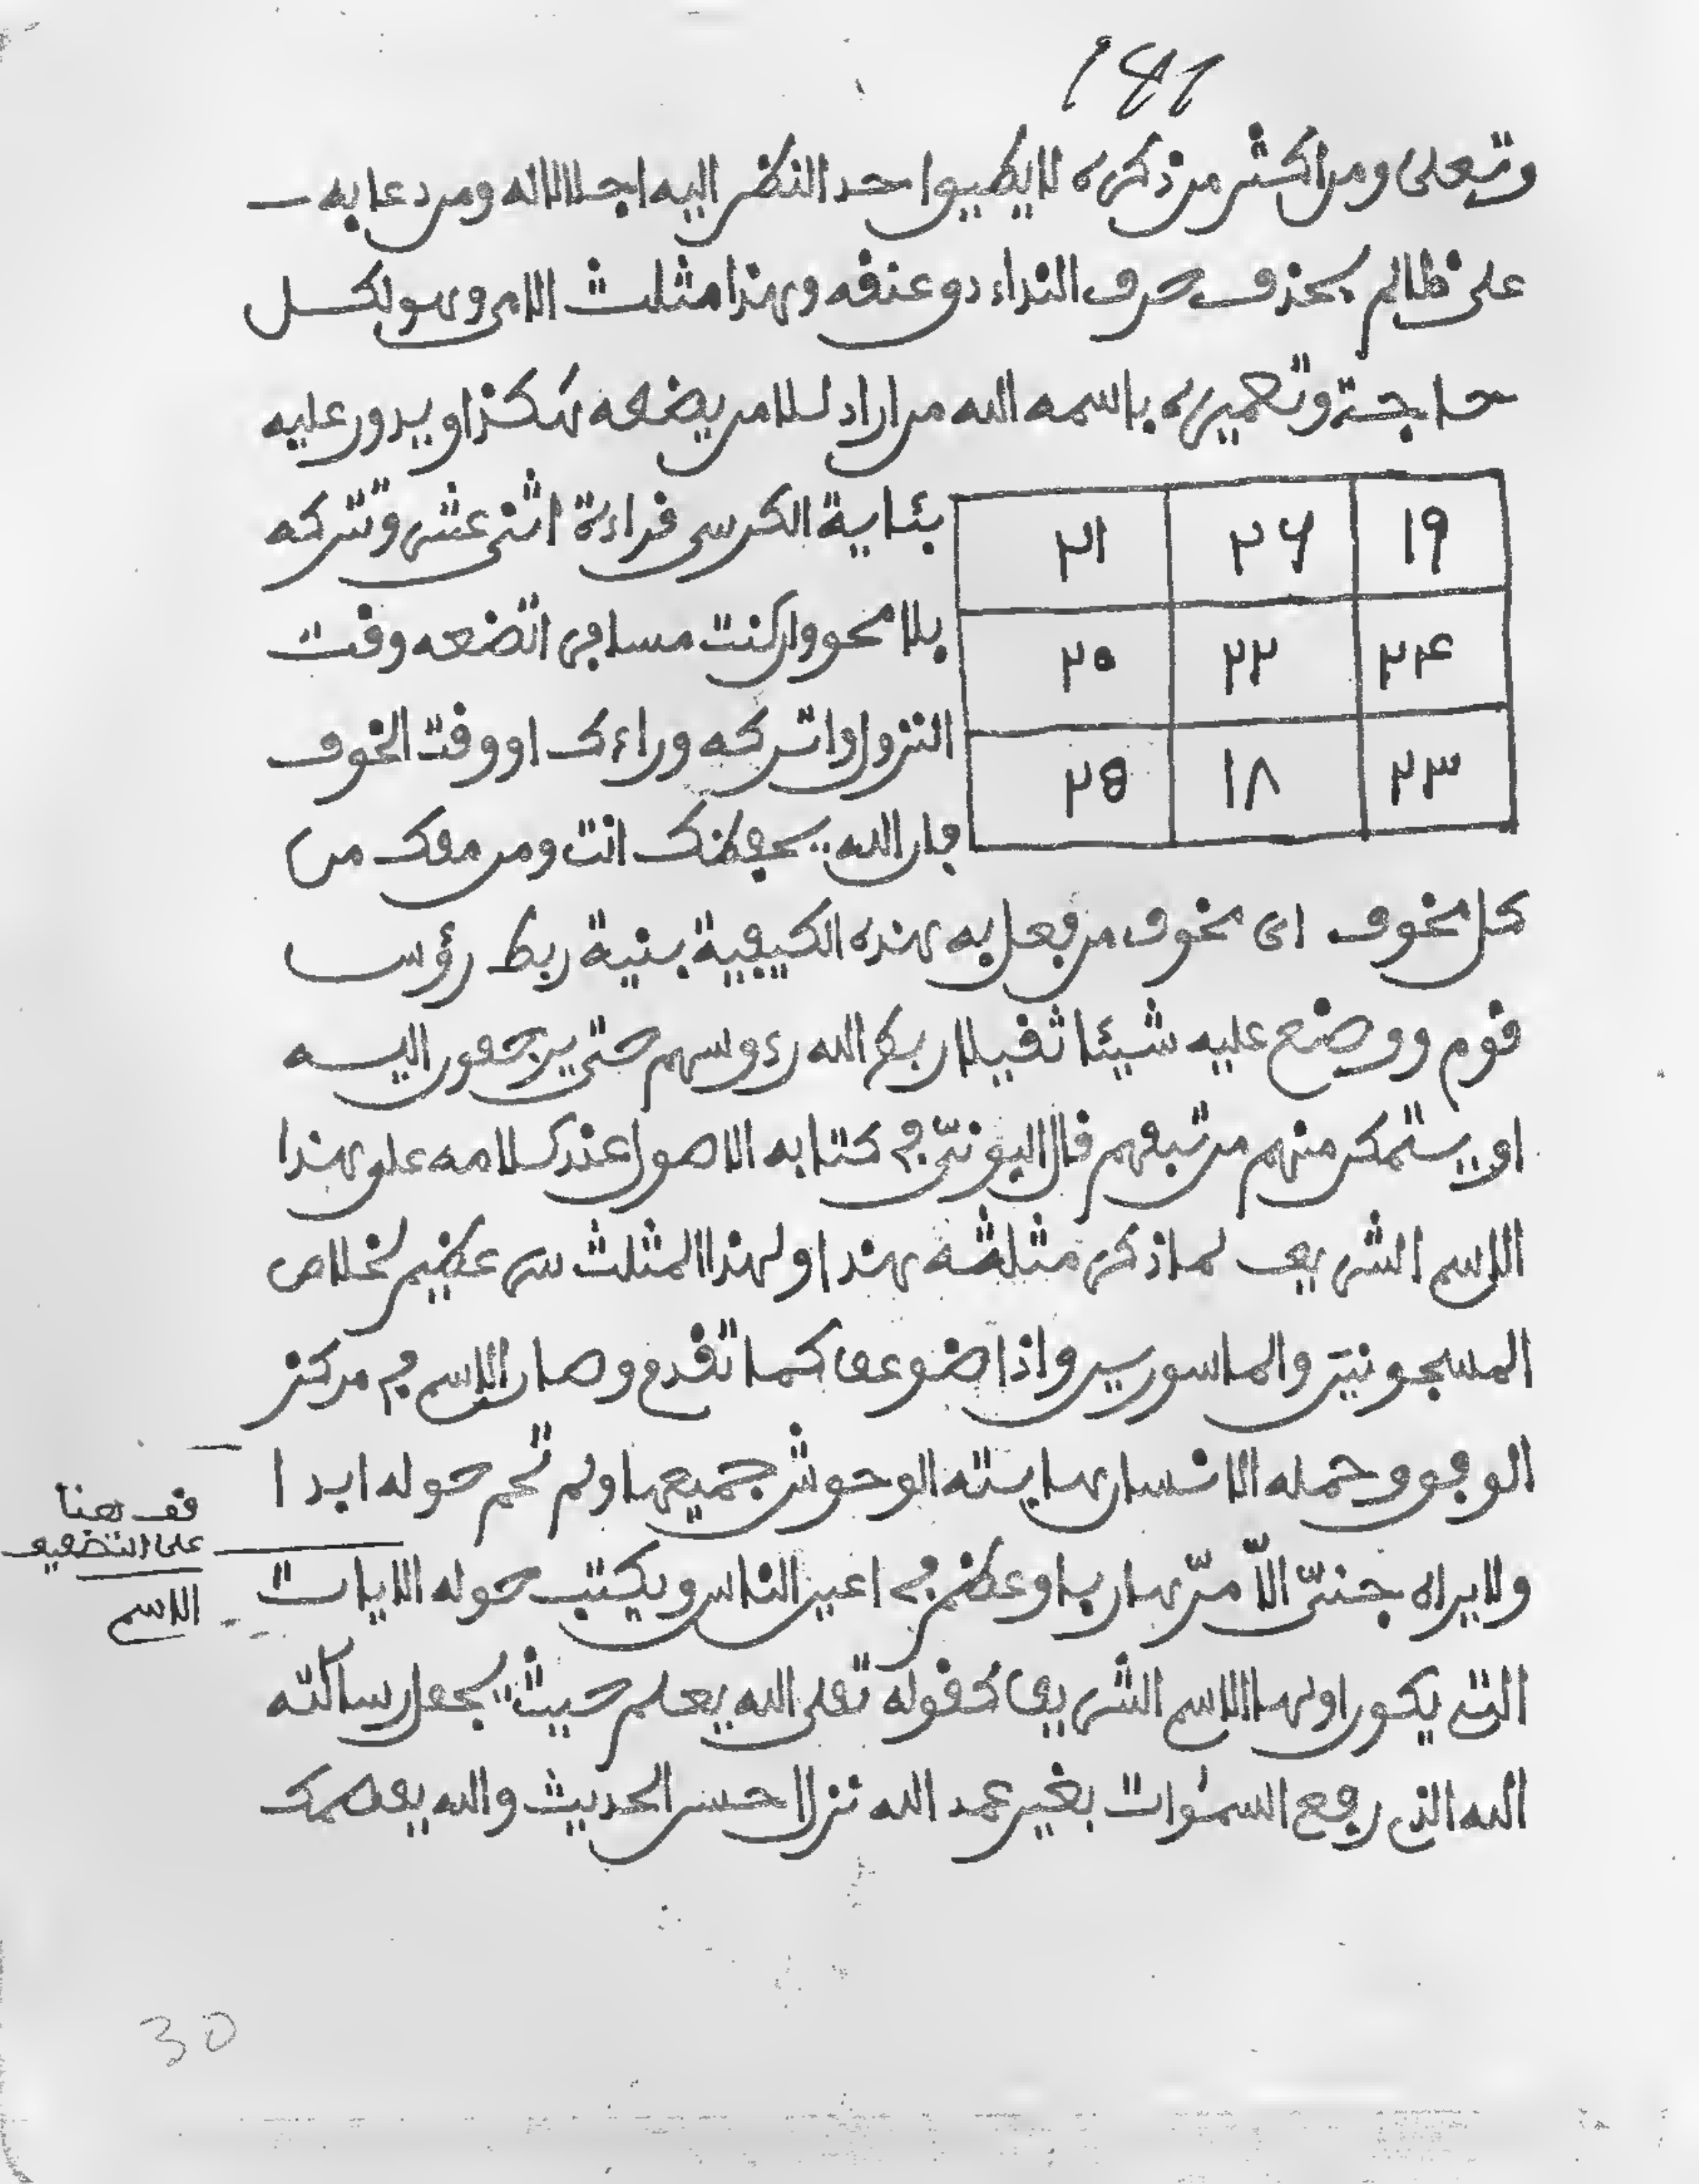 وتعلى ومن اكثر من ذكره لايطيوا حد النظر اليه اجلالاله ومن دعا به
على ظالم بحذف حرف النداء دو عنقه وهذا مثلث الامر وهو لكل
حاجة وتعميره باسمه الله من اراد للامر يضعه هكذا ويدور عليه
١٩ ٢٦ ٢١
٢٤ ٢٢ ٢٠
٢٣ ١٨ ٢٥
بئاية الكرسى قراءة اثنى عشر وتتركه
بلا محو وان كنت مسافرا تضعه وقت
النزول واتركه وراءك او وقت الخوف
فان الله يحفظك انت ومن معك من
كل مخوف اى مخوف من فعل به هذه الكيفية بنية ربط رؤس
قوم ووضع عليه شيئا ثقيلا ربط الله رءوسهم حتى يرجعون اليه
او يستمكن منهم من تبعهم قال البونى فى كتابه الاصول عند كلامه على هذا
الاسم الشريف لما ذكر مثلثه هذا ولهذا المثلث سر عظيم لخلاص
المسجونين والماسورين واذا ضوعف كما تقدم وصار الاسم فى مركز
الوفق وحمله الانسان هابته الوحوش جميعها ولم تحم حوله ابدا
ولا يراه جنى الا مر هاربا وعظم فى اعين الناس ويكتب حوله الايات
التى يكون اولها الاسم الشريف كقوله تعلى الله يعلم حيث يجعل رسالته
الله الذى رفع السموات بغير عمد الله نزل احسن الحديث والله يعصمك
قف هنا
على التضعيف
الاسم
30